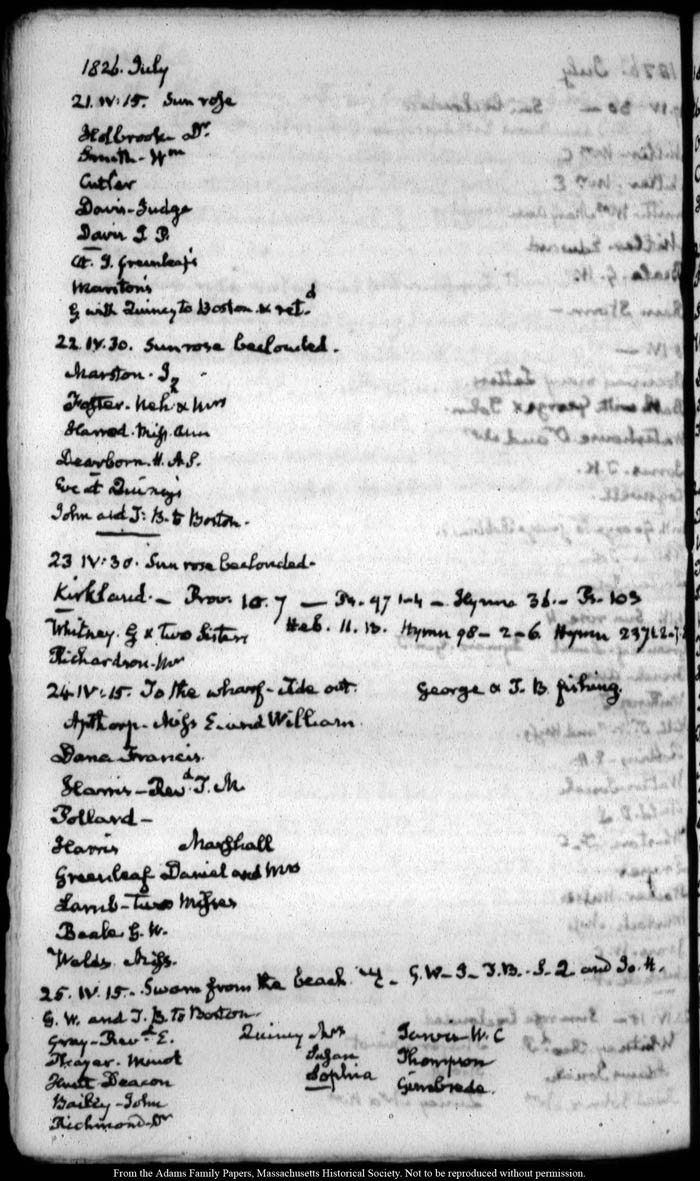 1826. July
21. IV: 15. Sun rose
Holbrook Dr.
Smith - Wm
Cutler
Davis - Judge
Davis I. P.
At. T. Greenleaf's
Marston's
G with Quincy to Boston & retd
22 IV. 30. Sun rose beclouded.
Marston. J
Foster. Neh & Mrs
Harrod. Miss Ann
Dearborn. H. A. S.
Eve at Quincy's
John and T: B. to Boston.
23 IV: 30. Sun rose beclouded.
Kirkland. - Prov. 10. 7 — Ps. 97 1-4 - Hymn 36. - Ps. 103
Heb. 11. 13. Hymn 98 - 2-6. Hymn 237
Whitney. G & Two Sisters
Richardson. Mr
24. IV: 15. To the wharf - tide out. George & T. B. fishing.
Apthorp - Miss E. and William.
Dana Francis.
Harris - Revd. T. M.
Pollard -
Harris Marshall
Greenleaf Daniel and Mrs
Lamb - two Misses
Beale G. W.
Welds Miss.
25. IV. 15. - Swam from the beach. G. W - J - T. B. - J. Q. and Jo. H.
G. W. and T. B. to Boston.
Gray - Revd. E. Quincy Mrs W. C
Thayer - Minot Susan Thompson
Hunt Deacon Sophia Gimbrede.
Bailey - John
Richmond - Dr
From the Adams Family Papers, Massachusetts Historical Society. Not to be reproduced without permission.